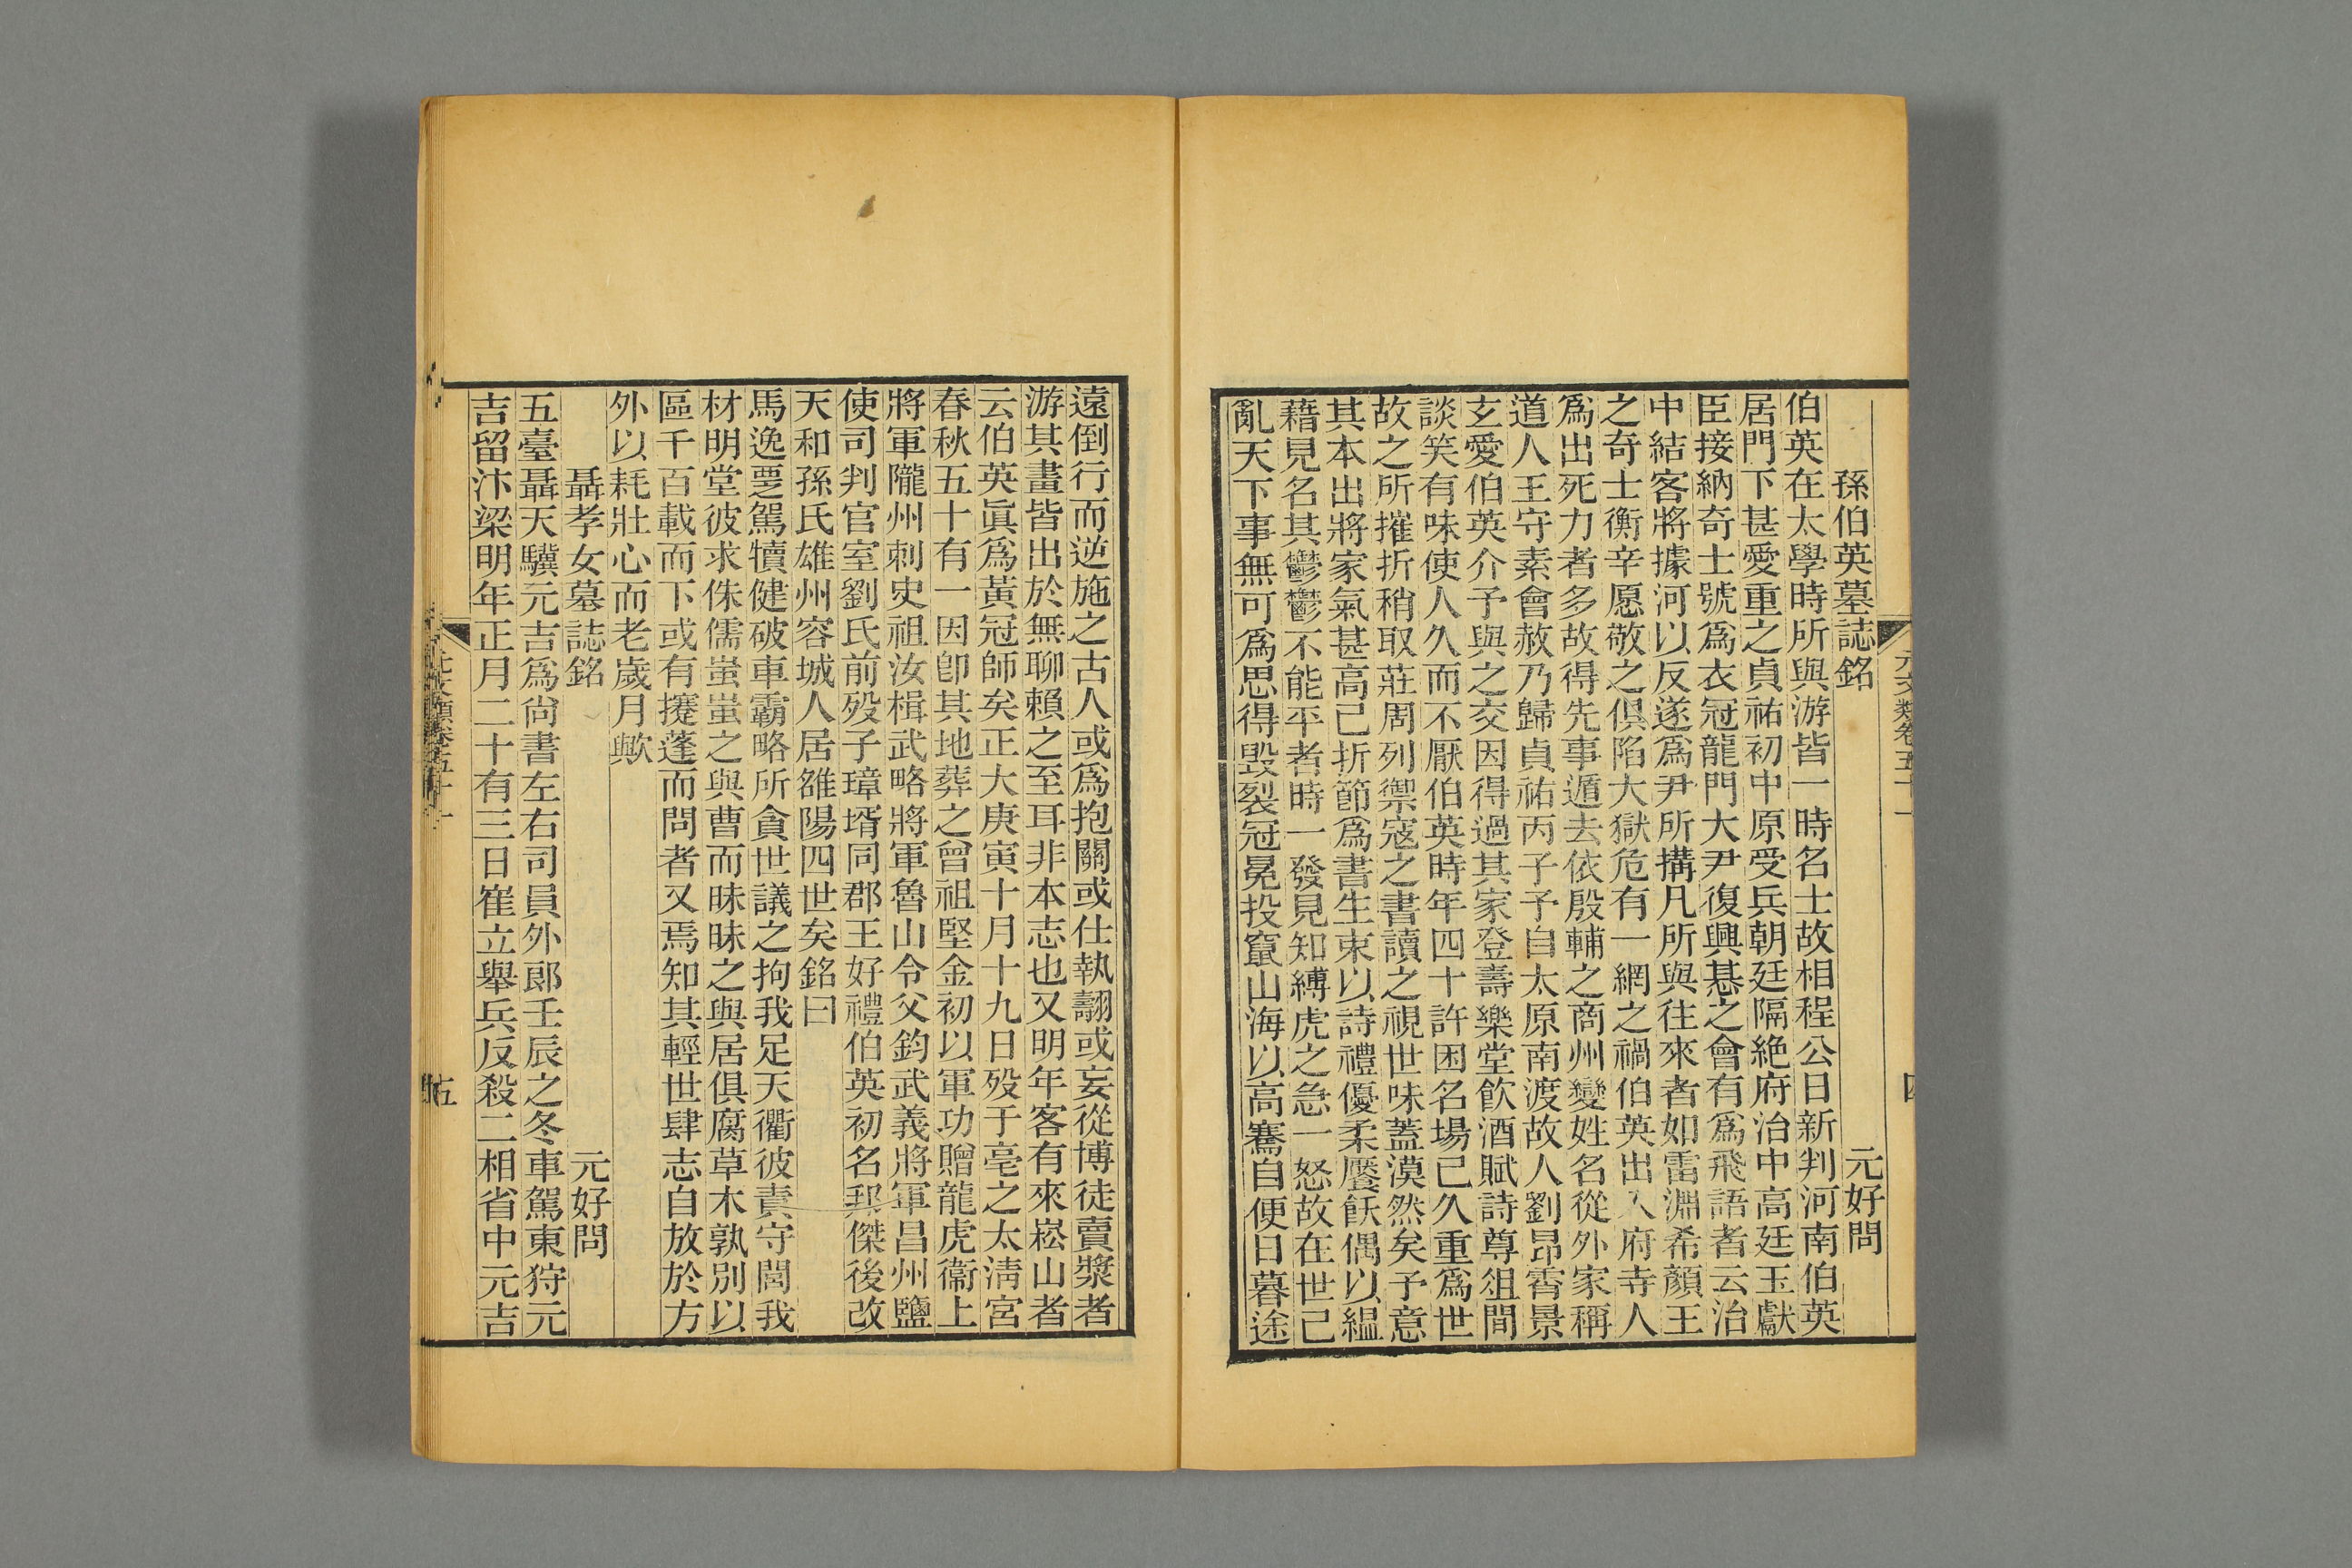 元文類卷五十一
孫伯英墓誌銘 元好問
伯英在太學時所與游皆一時名士故相程公日新判河南伯英
居門下甚愛重之貞祐初中原受兵朝廷隔絶府治中高廷玉獻
臣接納奇士號爲衣冠龍門大尹復興惎之會有爲飛語者云治
中結客將據河以反遂爲尹所搆凡所與往來者如雷淵希顏王
之奇士衡辛愿敬之俱陷大獄危有一網之禍伯英出入府寺人
爲出死力者多故得先事遁去依殷輔之商州變姓名從外家稱
道人王守素會赦乃歸貞祐丙子予自太原南渡故人劉昻霄景
玄愛伯英介予與之交因得過其家登壽樂堂飲酒賦詩尊俎間
談笑有味使人久而不厭伯英時年四十許困名場已久重爲世
故之所摧折稍取莊周列禦寇之書讀之視世味蓋漠然矣予意
其本出將家氣甚高已折節爲書生束以詩禮優柔饜飫偶以緼
藉見名其鬱鬱不能平者時一發見知縛虎之急一怒故在世已
亂天下事無可爲思得毀裂冠冕投竄山海以高騫自便日暮途
遠倒行而逆施之古人或爲抱關或仕執翿或妄從博徒賣漿者
游其畫皆出於無聊賴之至耳非本志也又明年客有來崧山者
云伯英眞爲黃冠師矣正大庚寅十月十九日歿于亳之太淸宮
春秋五十有一因卽其地葬之曾祖堅金初以軍功贈龍虎衞上
將軍隴州刺史祖汝楫武略將軍魯山令父鈞武義將軍昌州鹽
使司判官室劉氏前歿子璋壻同郡王好禮伯英初名邦傑後改
天和孫氏雄州容城人居雒陽四世矣銘曰
馬逸覂駕犢健破車霸略所貪世議之拘我足天衢彼責守閭我
材明堂彼求侏儒蚩蚩之與曹而昧昧之與居俱腐草木孰別以
區千百載而下或有攓蓬而問者又焉知其輕世肆志自放於方
外以耗壯心而老歲月歟
聶孝女墓誌銘 元好問
五臺聶天驥元吉爲尙書左右司員外郞壬辰之冬車駕東狩元
吉留汴梁明年正月二十有三日崔立舉兵反殺二相省中元吉
五